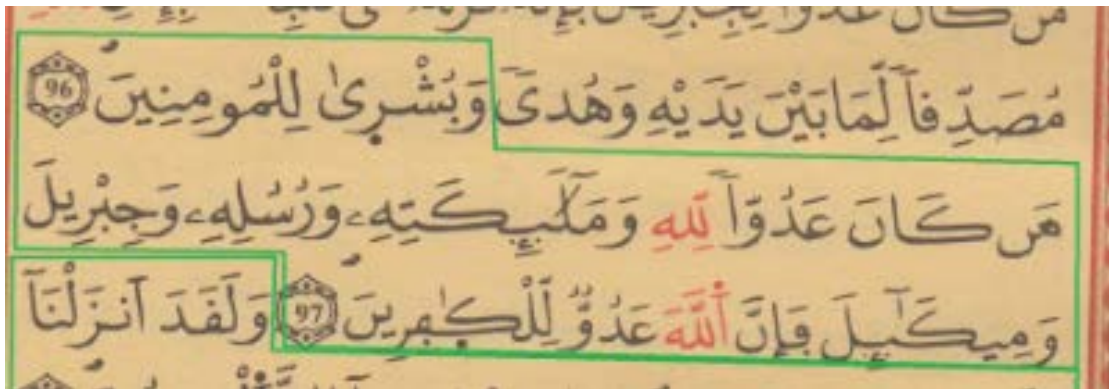 مَن كَانَ عَدُوّاٗ لِّجِبْرِيلَ فَإِنَّهُۥ
مُصَدِّقاٗ لِّمَا بَيْنَ يَدَيْهِ وَهُدىٗ وَبُشْرىٰ لِلْمُومِنِينَ 96
مَن كَانَ عَدُوّاٗ لِّلهِ وَمَلَٰٓئِكَتِهِۦ وَرُسُلِهِۦ وَجِبْرِيلَ
وَمِيكَٰٓئِلَ فَإِنَّ اَ۬للَّهَ عَدُوّٞ لِّلْكٰفِرِينَ 97 وَلَقَدَ اَنزَلْنَآ